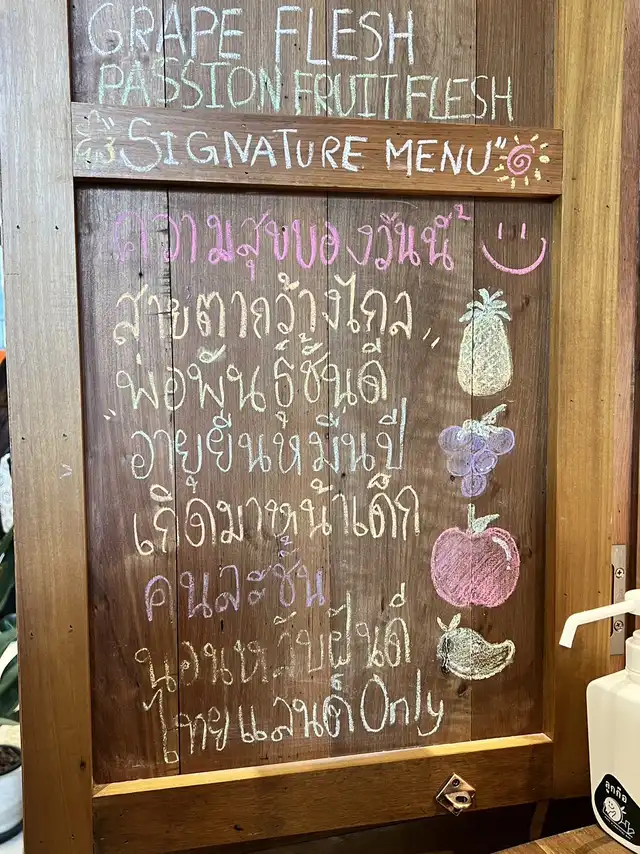 GRAPE FLESH
PASSION FRUIT FLESH
"SIGNATURE MENU"
ความสุขของวันนี้
สายตากว้างไกล
พ่อพันธุ์ชั้นดี
อายุยืนหมื่นปี
เกิดมาหน้าเด็ก
คนละชั้น
นอนหลับฝันดี
ไทยแลนด์ Only
ลูกก๊อ